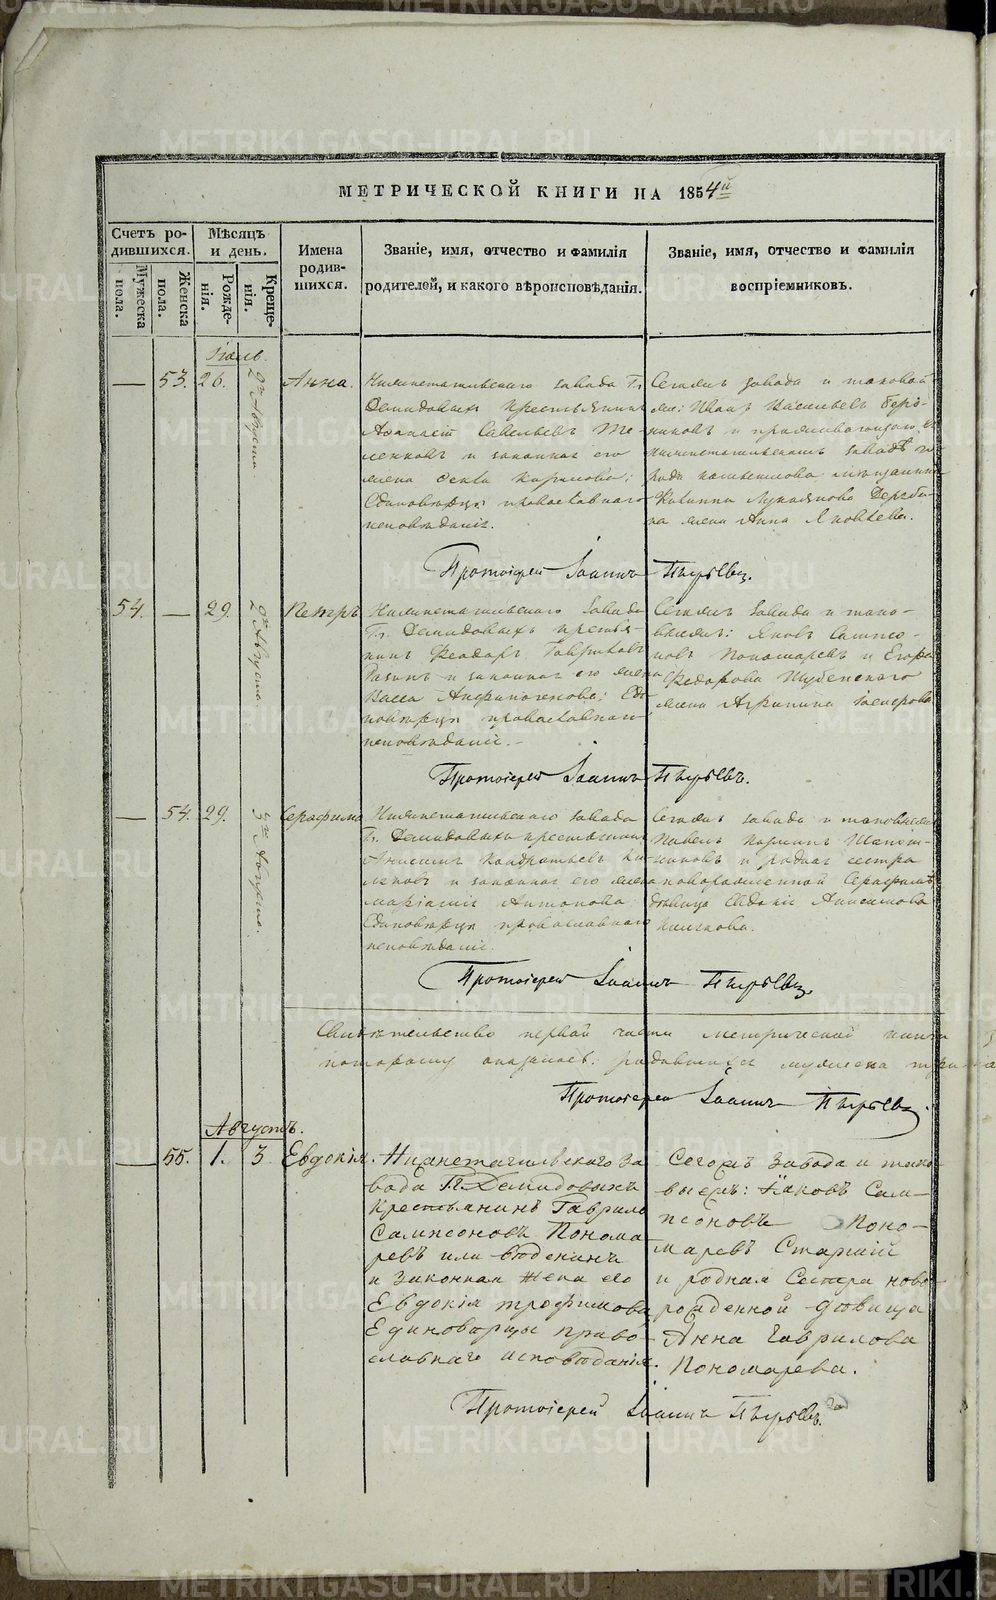 МЕТРИЧЕСКОЙ КНИГИ НА 1854й
Счетъ родившихся.
Мужеска пола.
Женска пола.
Мѣсяцъ и день.
Рожденія.
Крещенія.
Имена родившихся.
Званіе, имя, отчество и фамилія
родителей, и какого вѣроисповѣданія.
Званіе, имя, отчество и фамилія
воспріемниковъ.
Іюль.
— 53. 26. 2го Августа. Анна.
Нижнетагильскаго завода Гг.
Демидовыхъ крестьянинъ
Савельевъ
и законная его
жена
Единовѣрцы православнаго
исповѣданія.
Сегожъ завода и таковой
же: Иванъ Васильевъ
и проживающаго въ
Нижнетагильскомъ заводѣ
Лукьянова
жена Анна Яковлева.
Протоіерей Іоаннъ Пырьевъ.
54. — 29. 2го Августа. Петръ
Нижнетагильскаго завода
Гг. Демидовыхъ крестья-
нинъ Феодоръ Гавриловъ
и законная его жена
Васса Анфиногенова: Еди-
новѣрцы православнаго
исповѣданія. —
Сегожъ завода и тако-
выежъ: Яковъ Сампсо-
новъ Пономаревъ и Егора
Федорова
жена Агрипина
Протоіерей Іоаннъ Пырьевъ.
— 54. 29. 3го Августа. Серафима
Нижнетагильскаго завода
Гг. Демидовыхъ крестьянинъ
Анисимъ Кондратьевъ
и законная его жена
Антонова
Единовѣрцы православнаго
исповѣданія.
Сегожъ завода и таковыежъ
Павелъ Карпинъ
и родная сестра
новорожденной Серафимѣ
дѣвица Евдокія Анисимова
Протоіерей Іоаннъ Пырьевъ.
Свидѣтельство первой части метрической книги
оказалось: родившихся мужеска
Протоіерей Іоаннъ Пырьевъ.
Августъ.
— 55. 1. 3. Евдокія.
Нижнетагильскаго за-
вода Гг. Демидовыхъ
крестьянинъ Гаврило
Сампсоновъ Понома-
ревъ или
и законная жена его
Евдокія трофимова
Единоверцы право-
славнаго исповѣданія.
Сегожъ завода и тако-
выежъ: Іаковъ Сам-
псоновъ Поно-
маревъ Старшій
и родная Сестра ново-
рожденной дѣвица
Анна Гаврилова
Пономарева.
Протоіерей Іоаннъ Пырьевъ.
METRIKI.GASO-URAL.RU